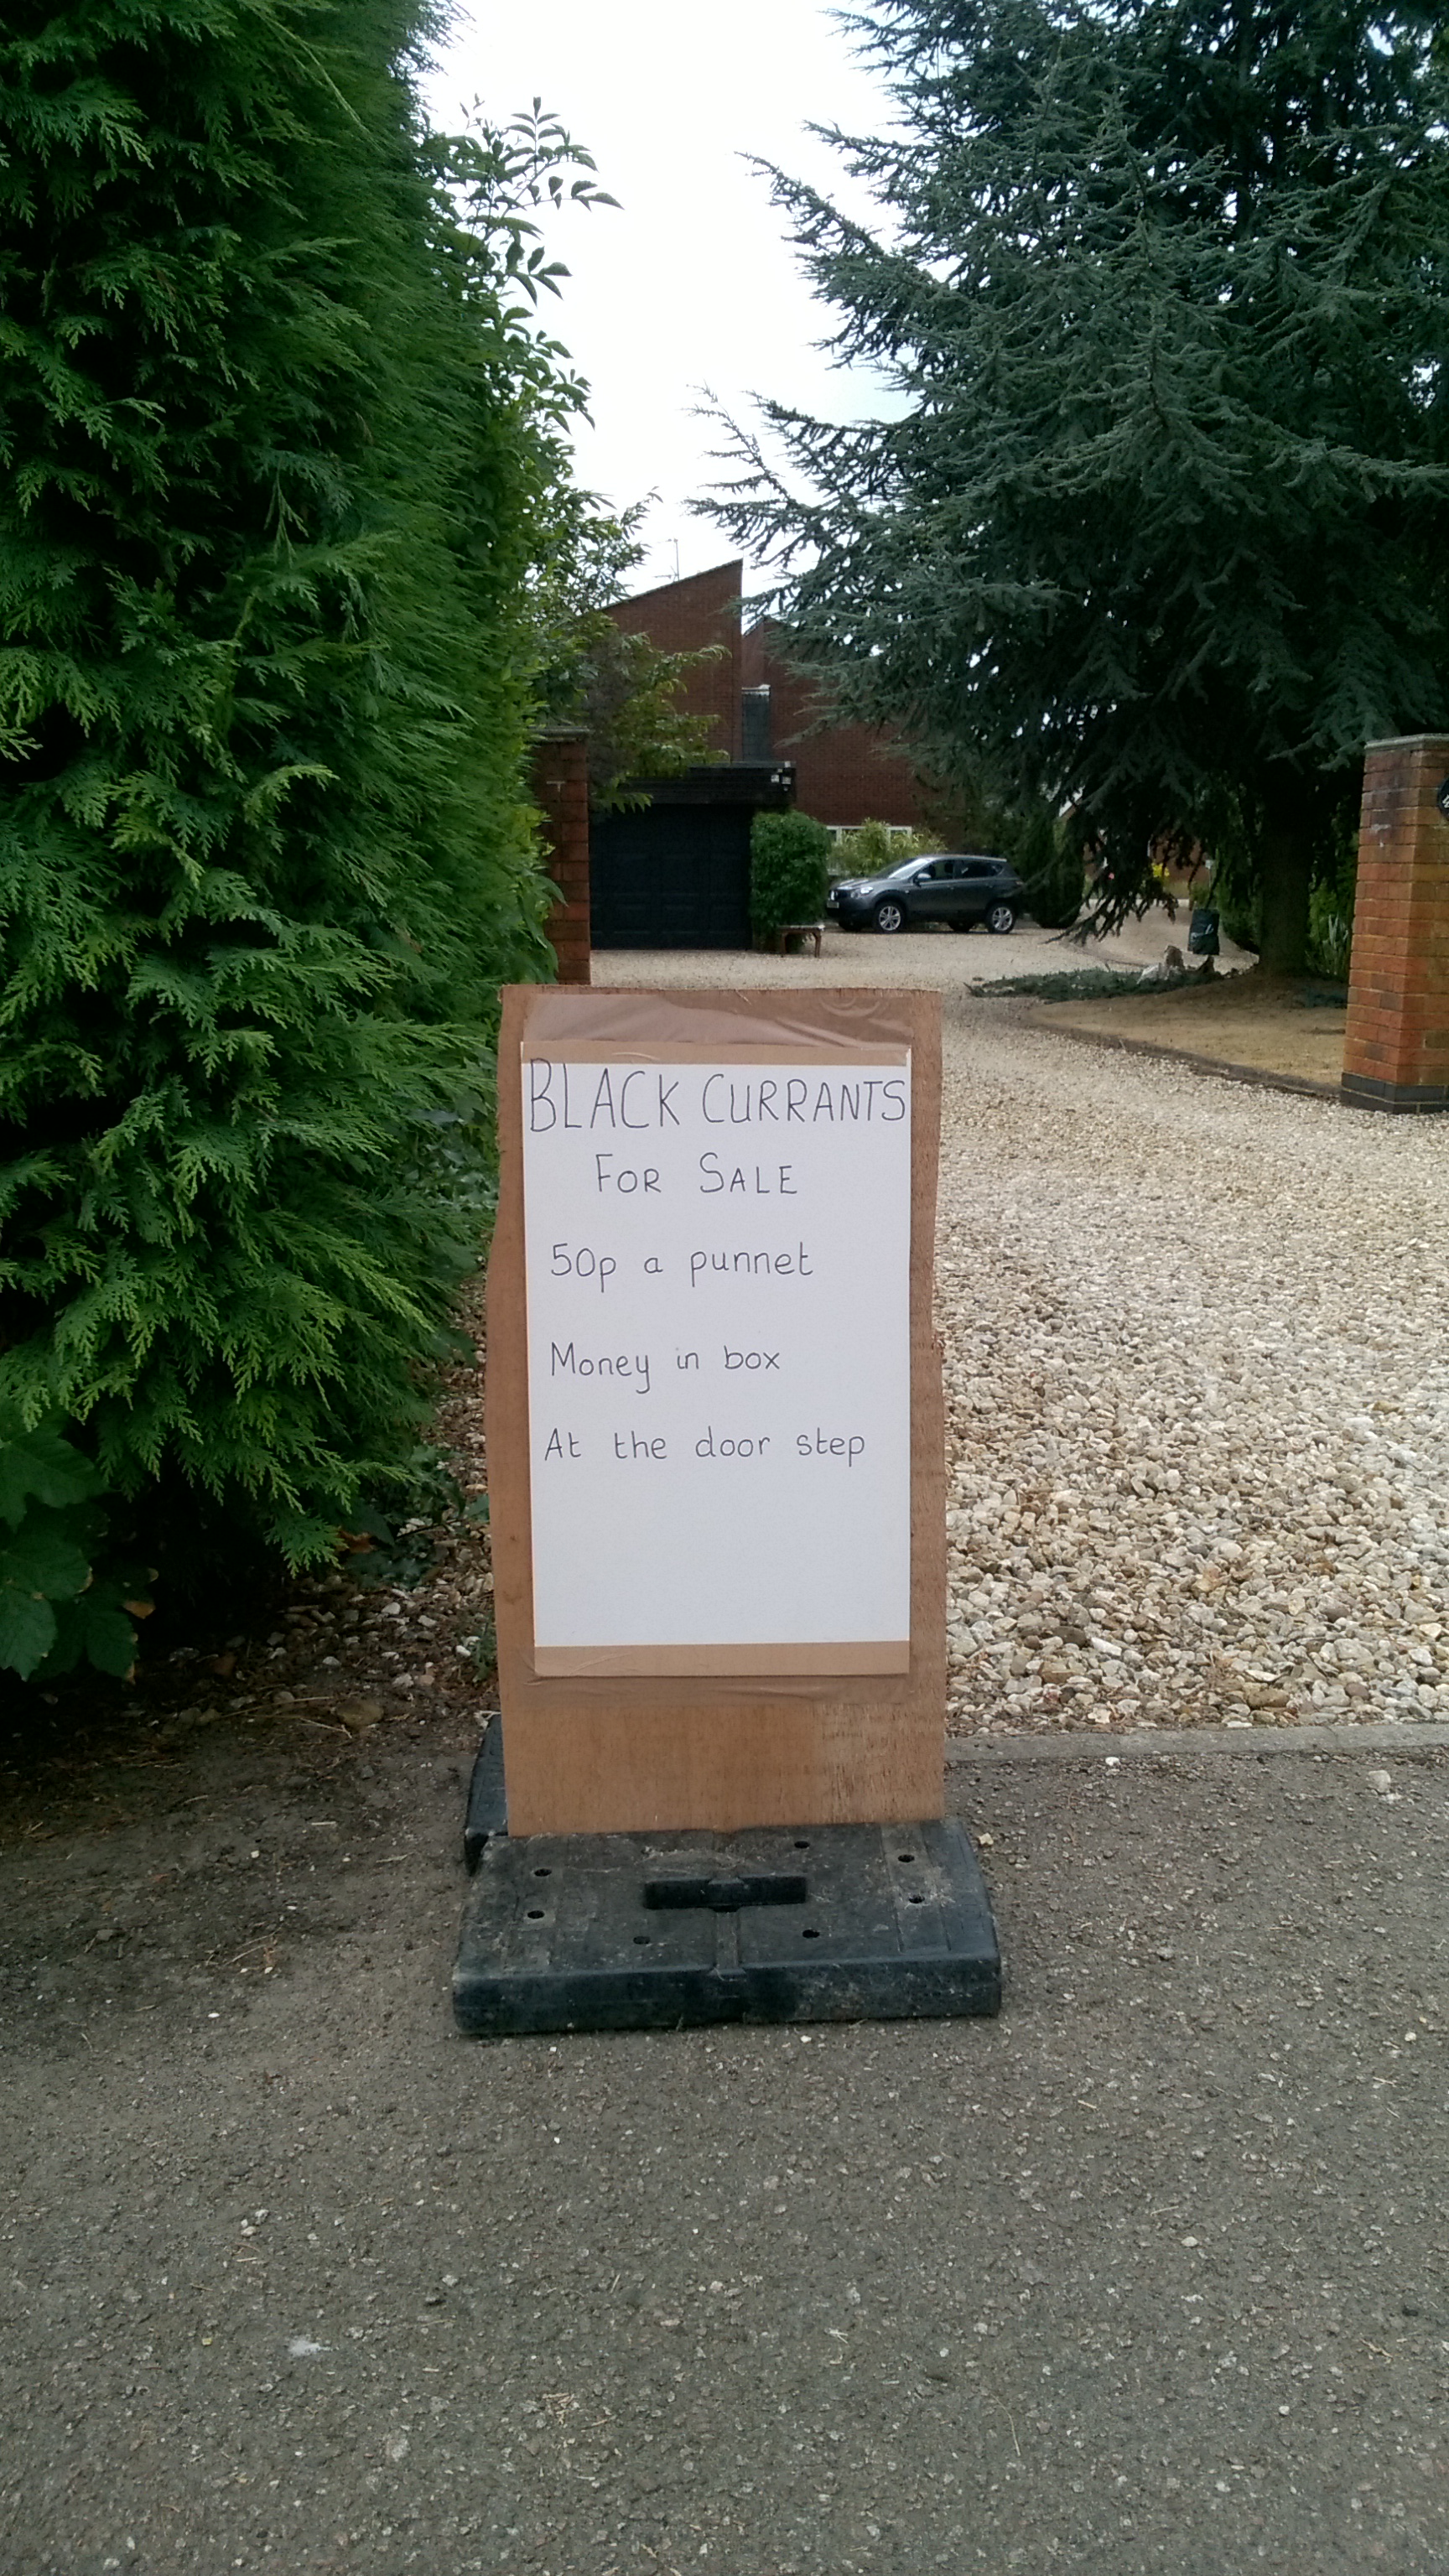 BLACK CURRANTS
FOR SALE
50p a punnet
Money in box
At the door step